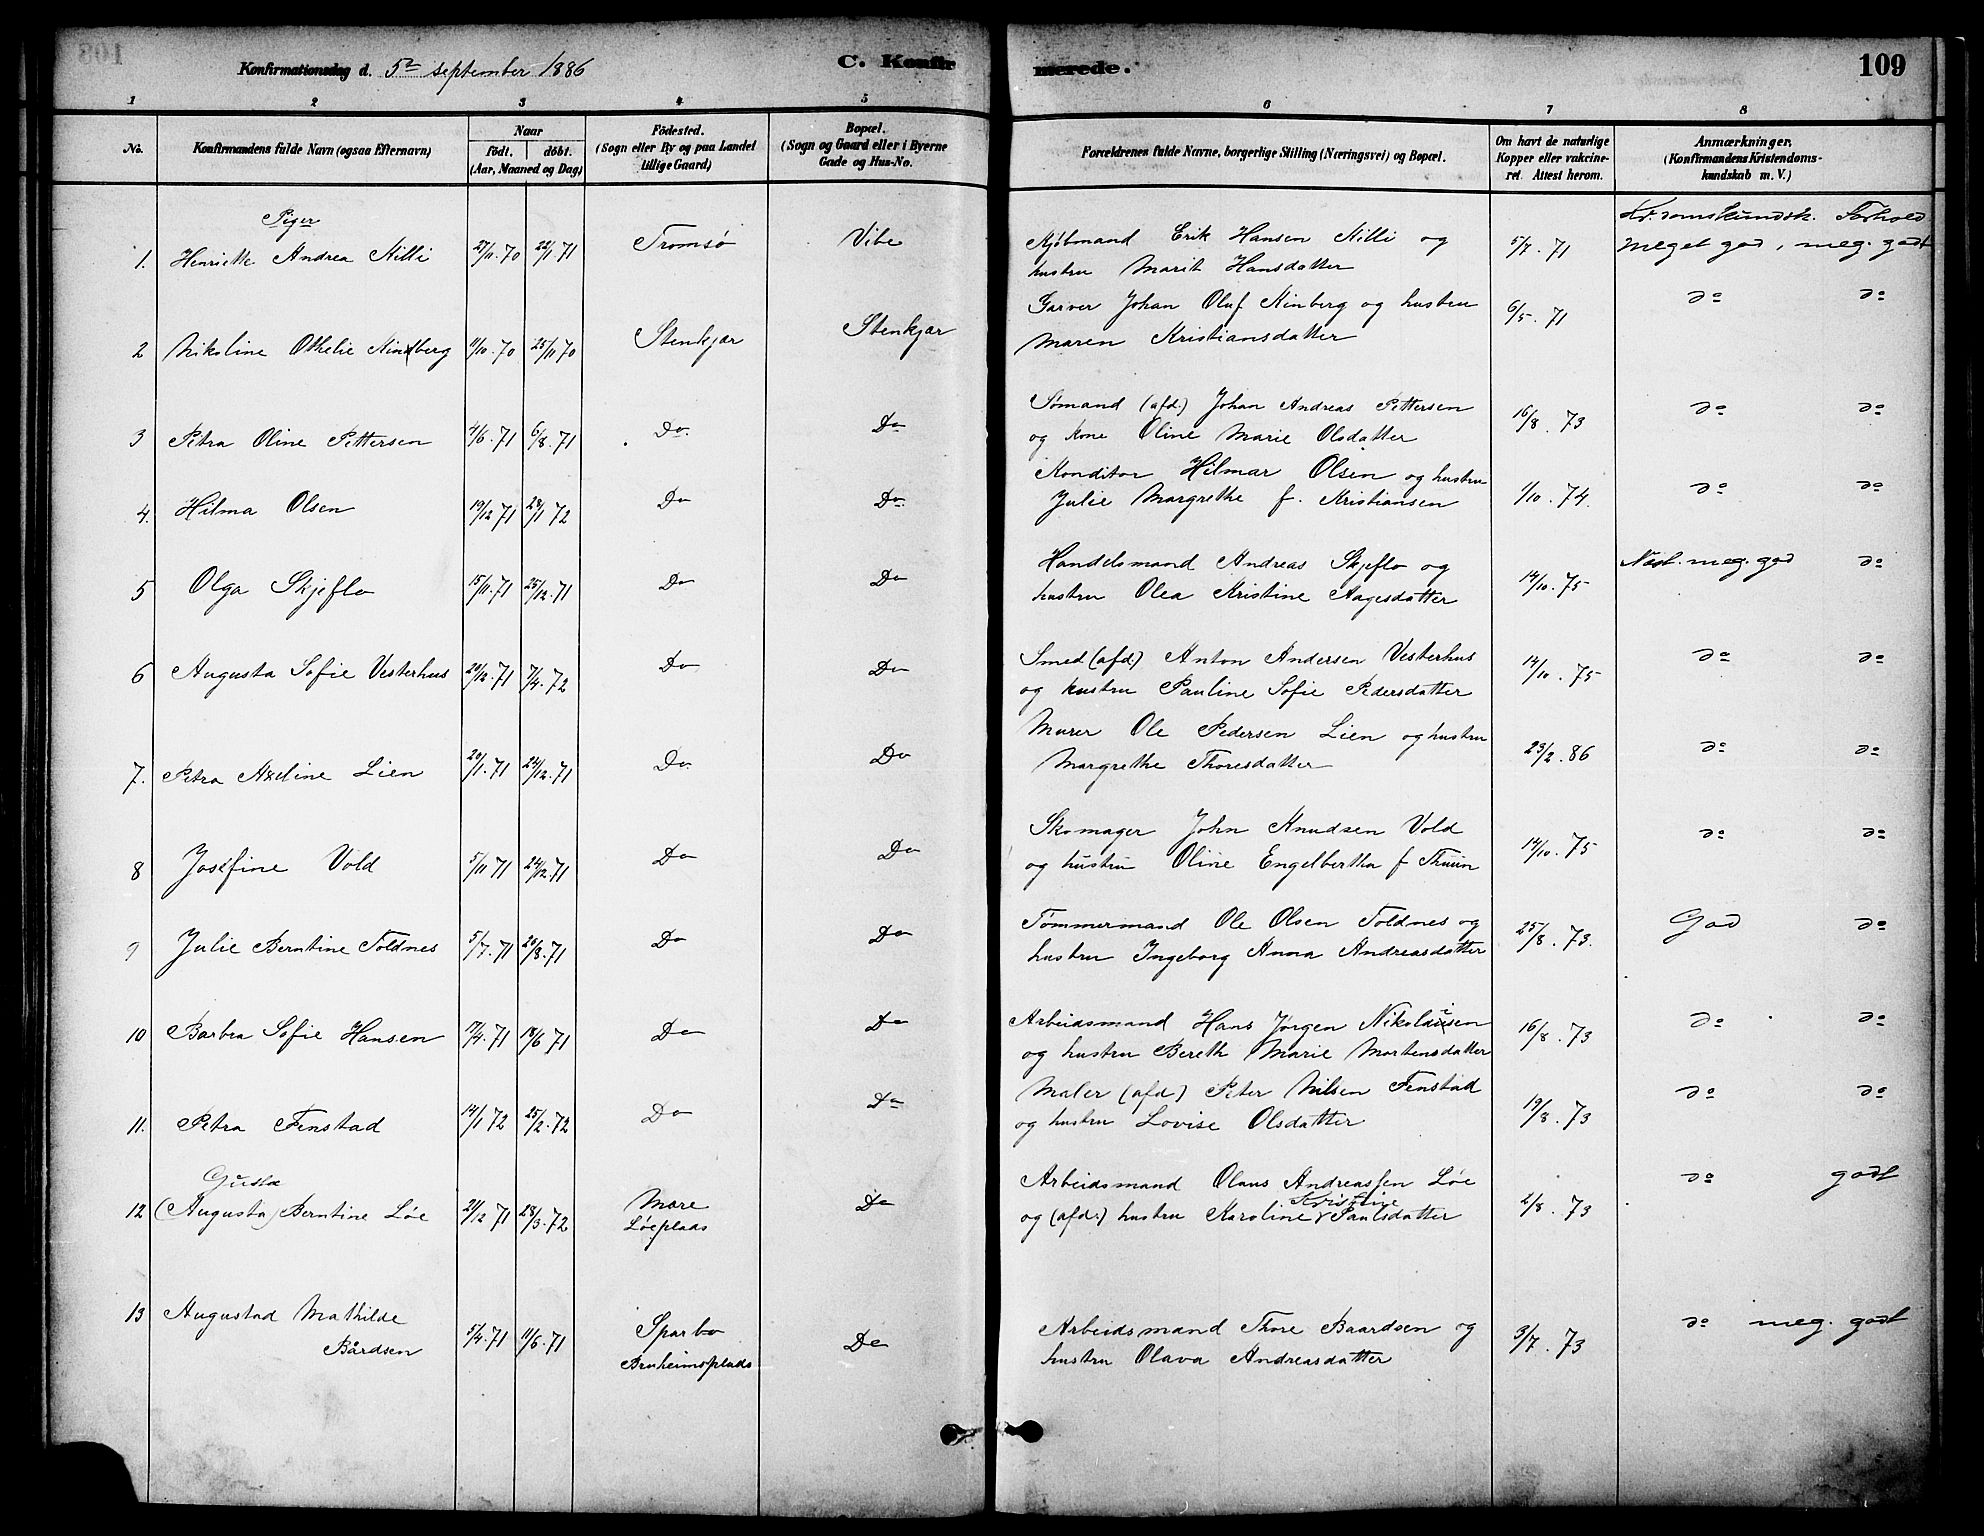 Konfirmationsdag d. 5te september 1886 C. Konfir merede. 109
1 2 3 4 5 6 7 8
No. Konfirmandens fulde Navn (ogsaa Efternavn) Naar født. døbt. (Aar, Maaned og Dag) Fødested. (Sogn eller By og paa Landet tillige Gaard) Bopæl. (Sogn og Gaard eller i Byerne Gade og Hus-No. Forældrenes fulde Navne, borgerlige Stilling (Næringsvei) og Bopæl. Om havt de naturlige Kopper eller vakcineret. Attest herom. Anmærkninger, (Konfirmandens Kristendomskundskab m. V.)
Piger
Kr.domskundsk. Forhold
1. Henriette Andrea Nilli 27/11.70 22/1.71 Tromsø Vibe Kjøbmand Erik Hansen Nilli og 5/7.71 Meget god, meg. godt
hustru Marit Hansdatter
2 Nikoline Othelie Ninberg 11/10.70 25/11 70 Stenkjær Stenkjær Garver Johan Oluf Ninberg og hustru 6/5.71 do do
Maren Kristiansdatter
3 Petra Oline Pettersen 4/6.71 6/8.71 Do Do Sømand (afd.) Johan Andreas Pettersen 16/8.73 do do
og kone Oline Marie Olsdatter
4. Hilma Olsen 19/12 71 28/1 72 Do Do Konditor Hilmar Olsen og hustru 1/10.74. do do
Julie Margrethe f. Kristiansen
5 Olga Skjeflo 15/11.71 25/12.71 Do Do Handelsmand Andreas Skjeflo og 14/10.75 Næst. meg. god do
hustru Olea Kristine Aagesdatter
6 Augusta Sofie Vesterhus 20/12.71 7/4.72 Do Do Smed (afd) Anton Andersen Vesterhus 14/10.75 do do
og hustru Pauline Sofie Pedersdatter
7. Petra Axeline Lien 20/1.71 24/12.71 Do Do Murer Ole Pedersen Lien og hustru 23/2.86 do do
Margrethe Thoresdatter
8 Josefine Vold 5/11 71 24/12.71 Do Do Skomager John Knudsen Vold 14/10.75 do do
og hustru Oline Engelbertha f Thuun
9 Julie Berntine Toldnes 5/7.71 20/8.71 Do Do Tømmermand Ole Olsen Toldnes og 25/8.73. God do
hustru Ingeborg Anna Andreasdatter
10 Barbra Sofie Hansen 17/4.71 18/6 71 Do Do Arbeidsmand Hans Jørgen Nikolaisen 16/8.73 do do
og hustru Bereth Marie Mortensdatter
11. Petra Fenstad 14/1 72 25/2.72 Do Do Maler (afd) Peter Nilsen Fenstad 19/8.73 do do
og hustru Lovise Olsdatter
Gusta
12 (Augusta) Berntine Løe 21/12 71 28/3.72 Mære Løeplads Do Arbeidsmand Olaus Andreassen Løe 2/8.73 do godt
og (afd.) hustru Karoline Kristine Paulsdatter
13 Augustad Mathilde Bårdsen 5/4.71 11/6.71 Sparbo Bruheimsplads Do Arbeidsmand Thore Baardsen og 3/7.73 do meg. godt
hustru Olava Andreasdatter